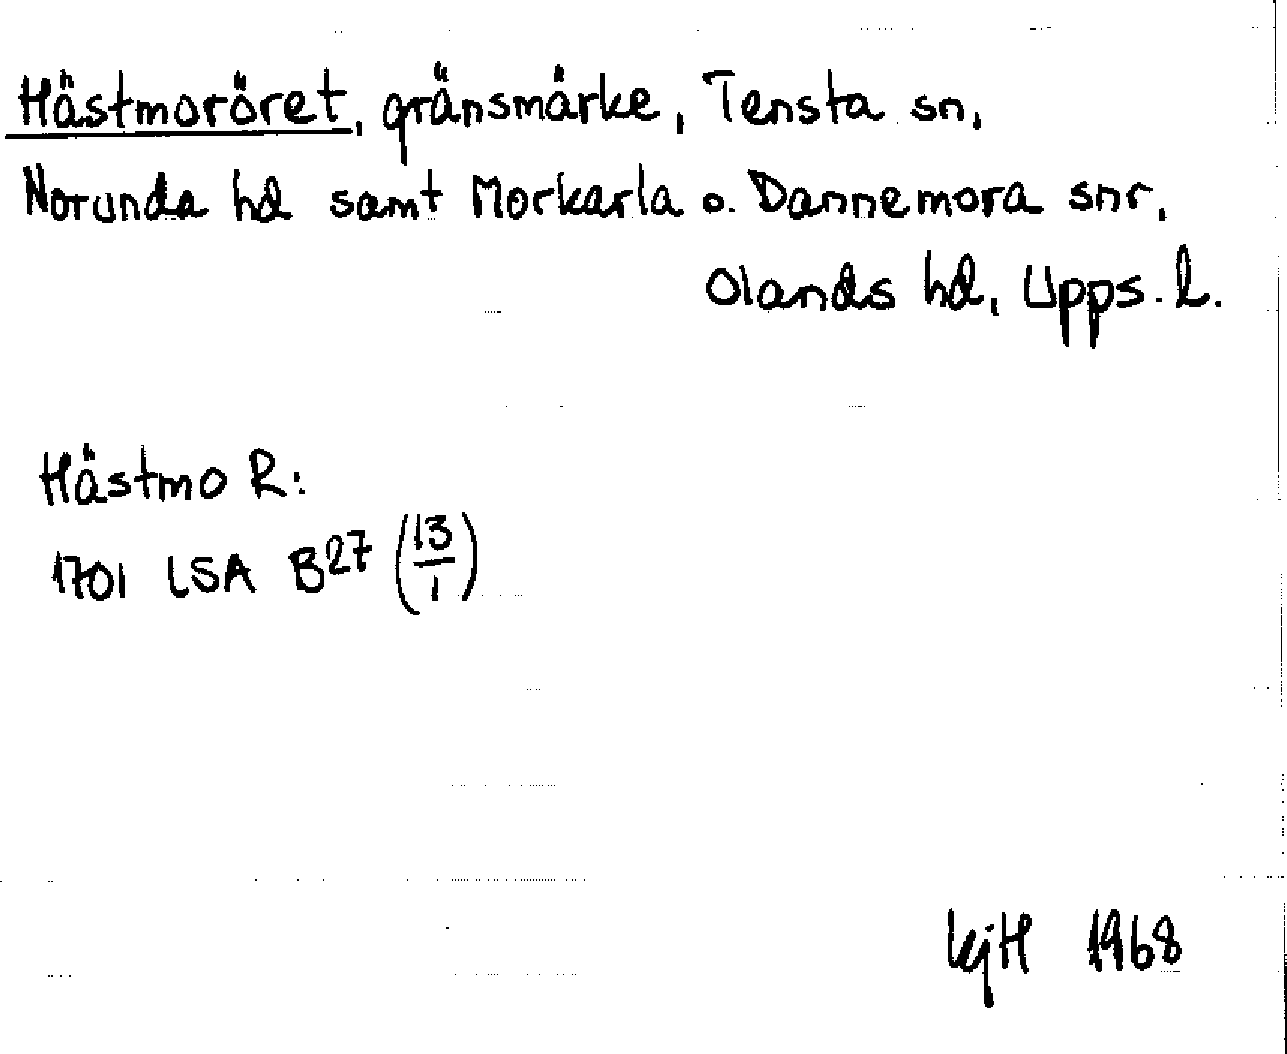 Hästmoröret, gränsmärke, Tensta sn,
Norunda hd samt Morkarla o. Dannemora snr,
Olands hd, Upps. l.
Hästmo R:
1701 LSA B27 (13/1)
KjH 1968